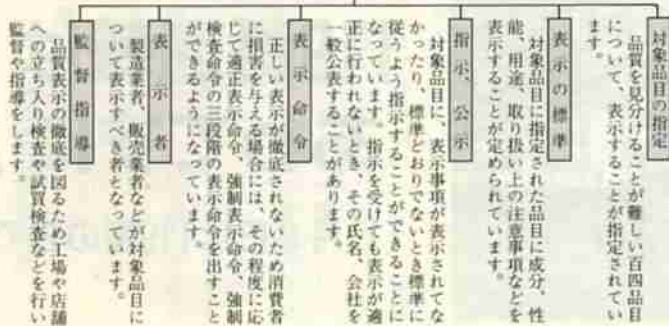 対象品目の指定
品質を見分けることが難しい百四品目
について、表示することが指定されてい
ます。
表示の標準
対象品目に指定された品目に成分、性
能、用途、取り扱い上の注意事項などを
表示することが定められています。
指示、公示
対象品目に、表示事項が表示されてな
かったり、標準どおりでないとき標準に
従うよう指示することができることに
なっています。指示を受けても表示が適
正に行われないとき、その氏名、会社を
一般公表することがあります。
表示命令
正しい表示が徹底されないため消費者
に損害を与える場合には、その程度に応
じて適正表示命令、強制表示命令、強制
検査命令の三段階の表示命令を出すこと
ができるようになっています。
表示者
製造業者、販売業者などが対象品目に
ついて表示すべき者となっています。
監督指導
品質表示の徹底を図るため工場や店舗
への立ち入り検査や試買検査などを行い
監督や指導をします。